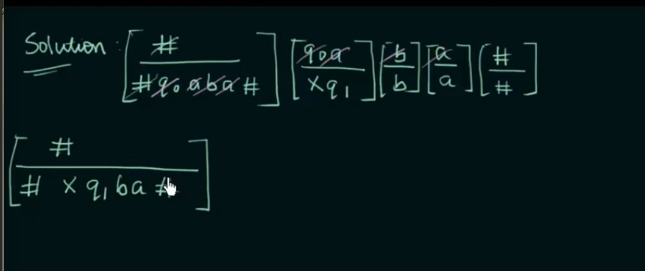 Solution : [ # / # q₀ a b a # ] [ q₀ a / x q₁ ] [ b / b ] [ a / a ] [ # / # ]
[ # / # x q₁ b a # ]